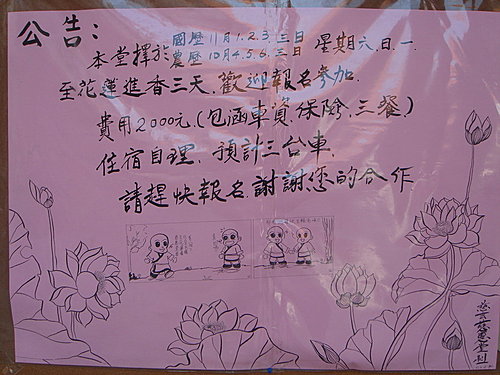 公告：
本堂擇於國歷11月1.2.3.三日 星期六.日.一
農歷10月4.5.6.三日
至花蓮進香三天,歡迎報名參加.
費用2000元,(包涵車資.保險.三餐)
住宿自理.預計三台車.
請趕快報名謝謝您的合作